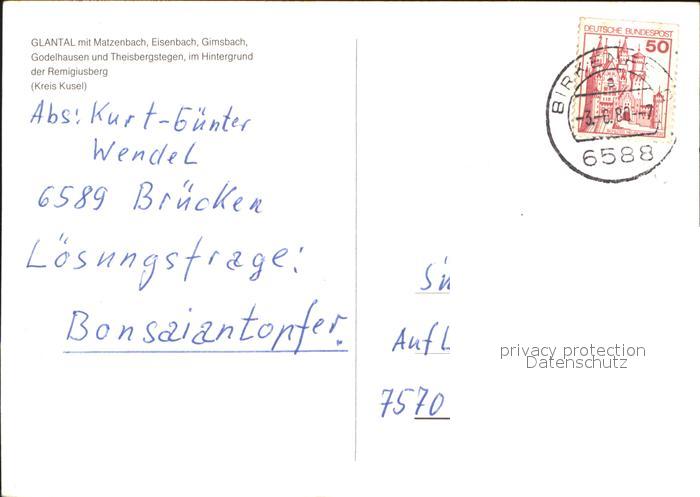 GLANTAL mit Matzenbach, Eisenbach, Gimsbach,
Godelhausen und Theisbergstegen, im Hintergrund
der Remigiusberg
(Kreis Kusel)
Abs: Kurt-Günter
Wendel
6589 Brücken
Lösungsfrage:
Bonsaiantopfer.
DEUTSCHE BUNDESPOST
50
6588
Auf
7570
privacy protection
Datenschutz